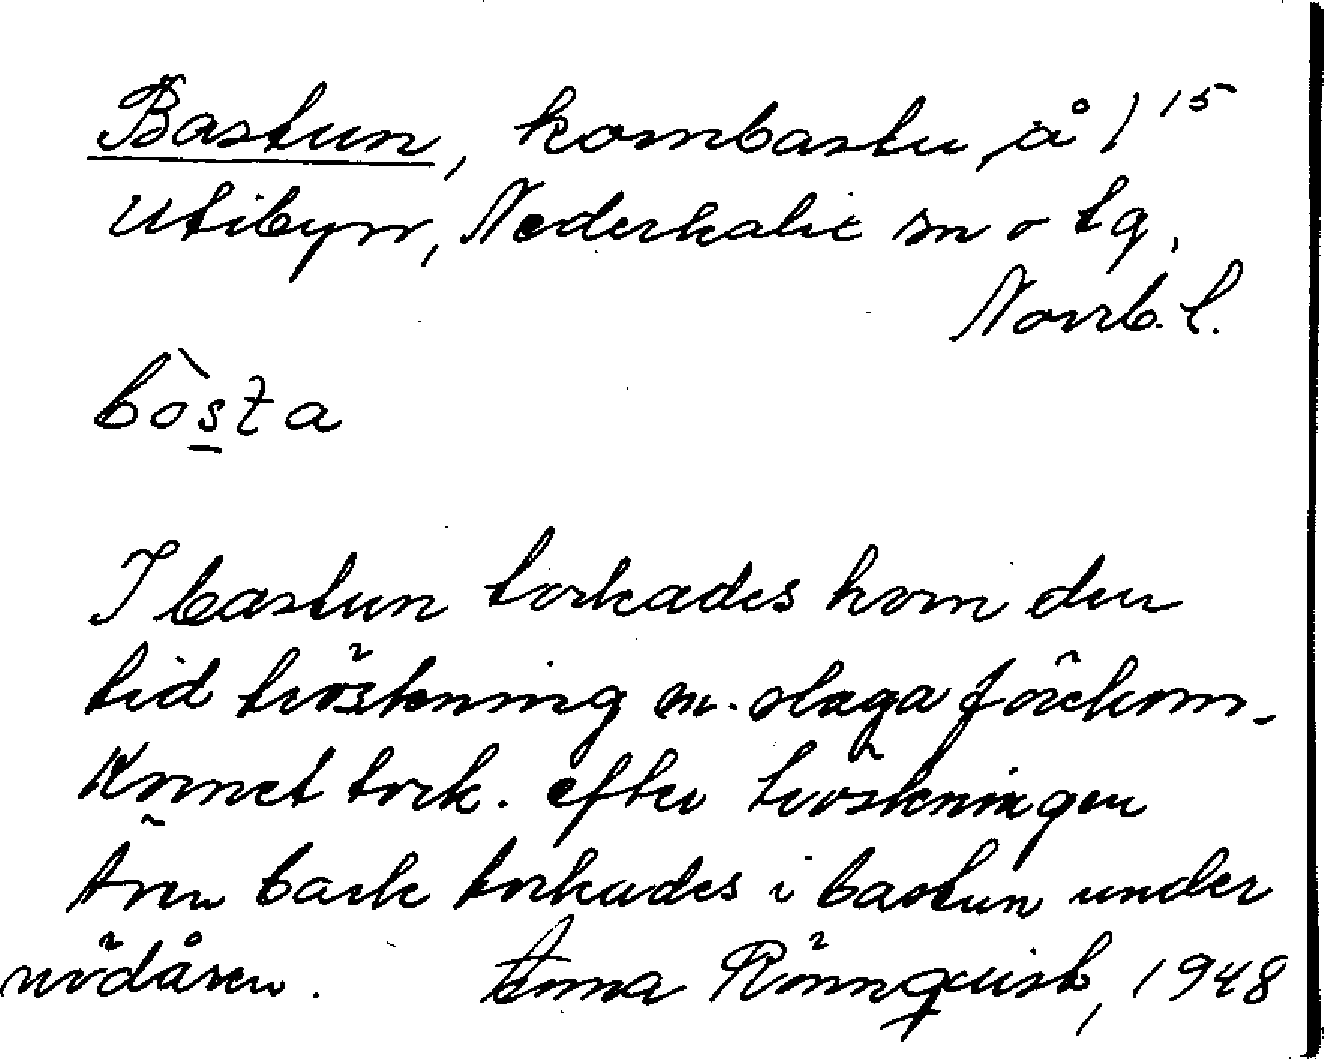 Bastun, kornbastu, å 1¹⁵
Utibyn, Nederkalix sn o tg,
Norrb. l.
bòsta
I bastun torkades korn den
tid tröskning m. slaga förekom.
Kornet tork. efter tröskningen
Även bark torkades i bastun under
nödåren. Anna Rönnquist, 1948